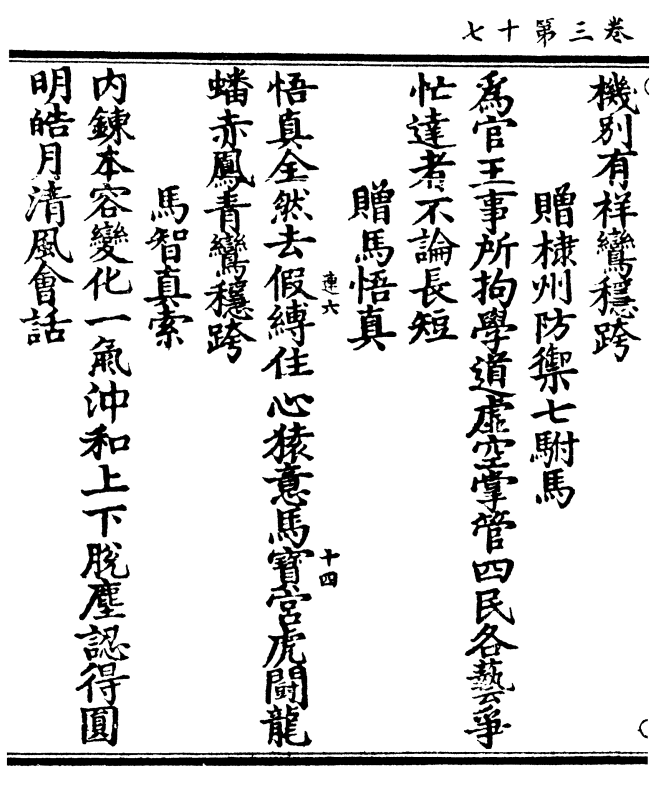 卷三第十七
機別有样鸞穩跨
贈棣州防禦七駙馬
爲官王事所拘學道虛空掌管四民各藝爭
忙達者不論長短
贈馬悟真
悟真全然去假縛住心猿意馬寶宮虎鬪龍
連六
十四
蟠赤鳳青鸞穩跨
馬智真索
内鍊本容變化一氣沖和上下脫塵認得圓
明皓月清風會話